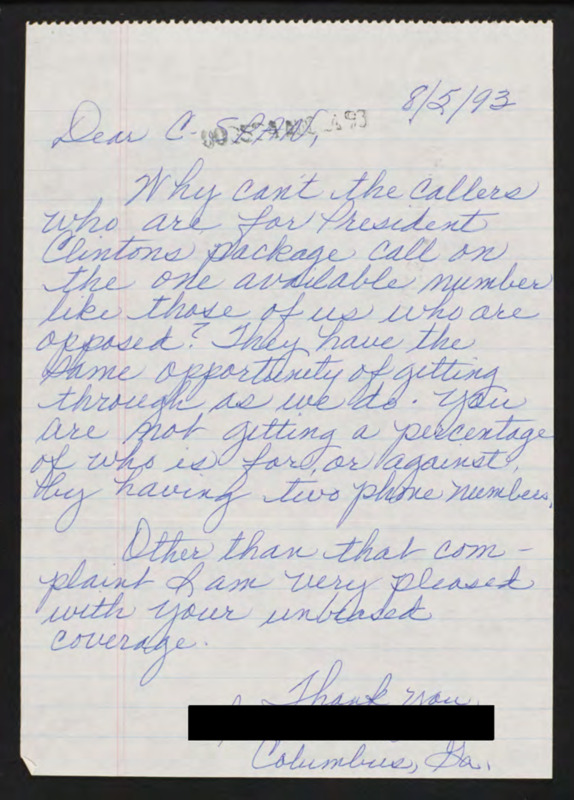 8/5/93
Dear C-SPAN,
Why can't the callers
who are for President
Clintons package call on
the one available number
like those of us who are
opposed? They have the
same opportunity of gitting
through as we do. You
are not gitting a percentage
of who is for, or against,
by having two phone numbers.
Other than that com-
plaint I am very pleased
with your unbiased
coverage.
Thank you
Columbus, Ga.